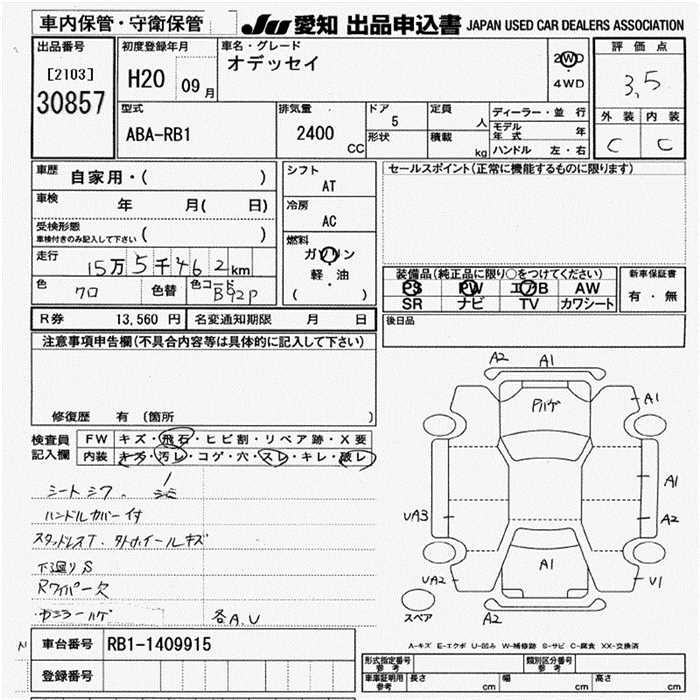 車内保管・守衛保管 JU 愛知 出品申込書 JAPAN USED CAR DEALERS ASSOCIATION
出品番号 初度登録年月 車名・グレード 評価点
[2103] H20 09月 オデッセイ 2WD
30857 4WD 3,5
型式 排気量 ドア 定員 ディーラー・並行 外装 内装
ABA-RB1 2400 CC 5 人 モデル年式 年 C C
形状 積載 kg ハンドル 左・右
車歴 自家用・( ) シフト セールスポイント(正常に機能するものに限ります)
AT
車検 年 月( 日) 冷房
AC
受検形態
車検付きのみ記入して下さい ( ) 燃料
走行 15万5千462km ガソリン
軽・油
( )
色 クロ 色替 色コード B92P
装備品(純正品に限り○をつけてください) 新車保証書
PS PW エアB AW 有・無
SR ナビ TV カワシート
R券 13,560 円 名変通知期限 月 日 後日品
注意事項申告欄(不具合内容等は具体的に記入して下さい)
修復歴 有 (箇所 )
検査員 FW キズ・飛石・ヒビ割・リペア跡・X要
記入欄 内装 キズ・汚レ・コゲ・穴・スレ・キレ・破レ
シートシワ・シミ
ハンドルカバー付
スタッドレスT・タトホイールキズ
下廻りS
Rワイパー欠
ハゲ 各A.U
A2 A1
Pハゲ A1
A1
UA3 A2
A1
UA2 U1
スペア A2
車台番号 RB1-1409915
A-キズ E-エクボ U-凹み W-補修跡 S-サビ C-腐食 XX-交換済
登録番号
形式指定番号 参考 類別区分番号 参考
車庫証明用 参考 長さ cm 幅 cm 高さ cm